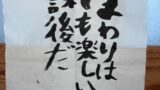 まわりは
も楽しい
課後だ